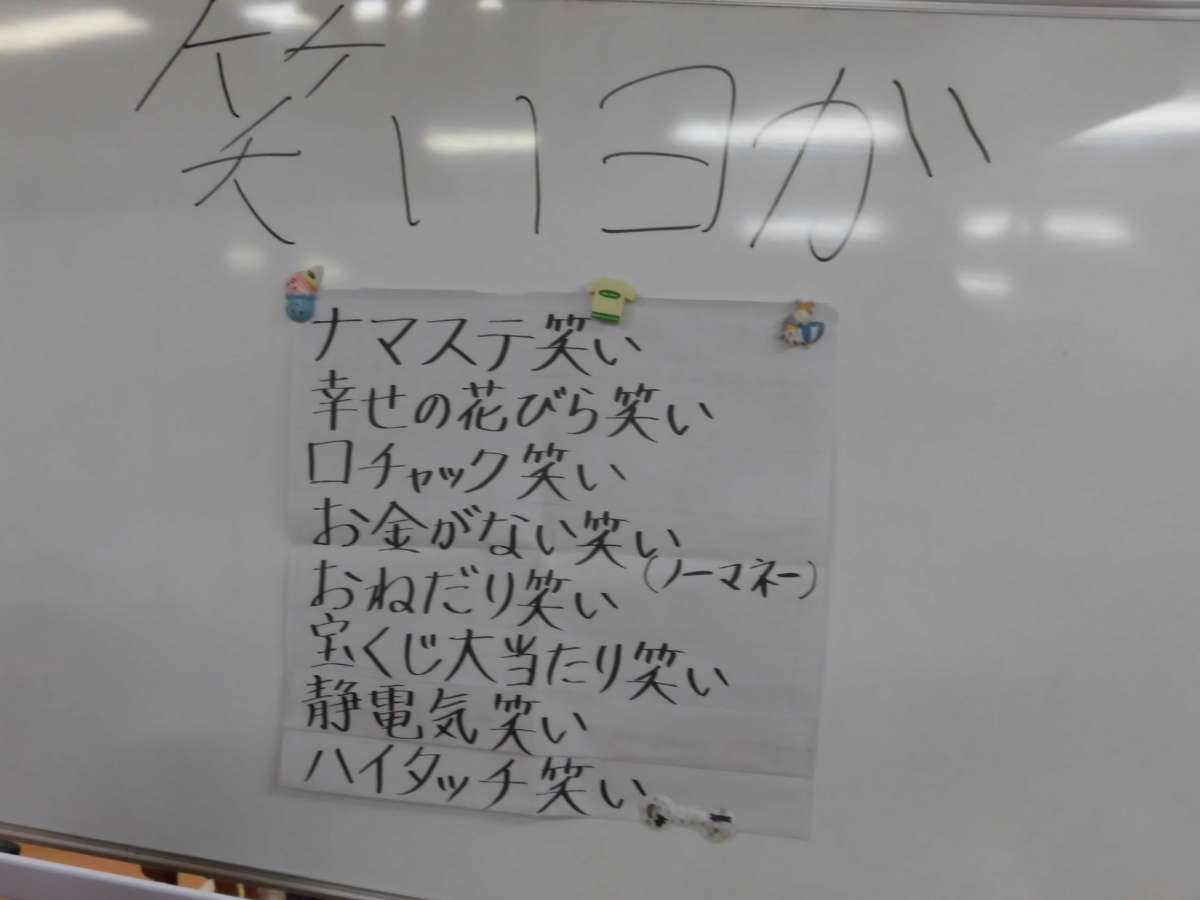 笑いヨガ
ナマステ笑い
幸せの花びら笑い
口チャック笑い
お金がない笑い
(ノーマネー)
おねだり笑い
宝くじ大当たり笑い
静電気笑い
ハイタッチ笑い